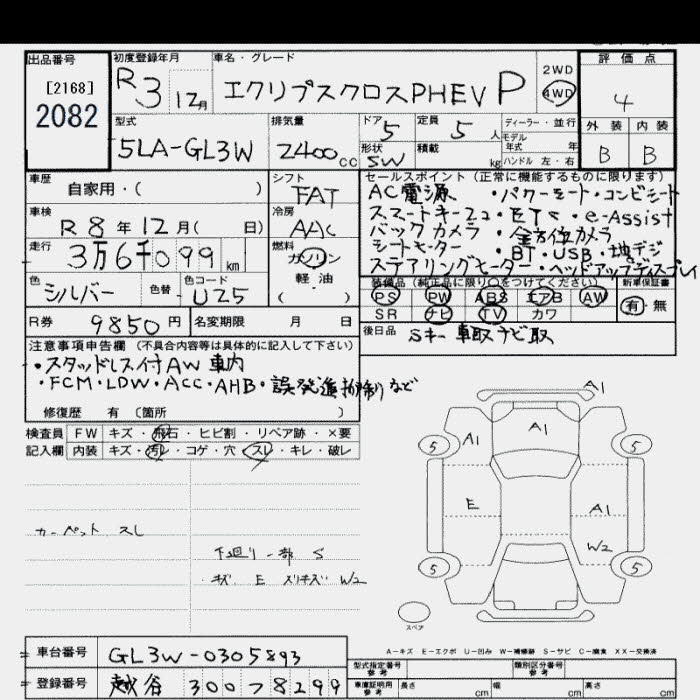 出品番号 初度登録年月 車名・グレード 評価点
[2168]
2082
R3 12月 エクリプスクロスPHEV P 2WD 4WD 4
型式 排気量 ドア 定員 ディーラー・並行 外装 内装
5LA-GL3W 2400cc 5 5人 モデル年式 年 B B
形状 積載 kg ハンドル 左・右
SW
車歴 シフト セールスポイント (正常に機能するものに限ります)
自家用・( ) FAT AC電源 ・パワーシート・コンビシート
車検 冷房 スマートキーエコ・ETC・e-Assist
R 8年12月( 日) AAC バックカメラ ・全方位カメラ
走行 燃料 シートヒーター ・BT・USB・地デジ
3万6千099km ガソリン ステアリングヒーター・ヘッドアップディスプレイ
( 軽油 )
色 色替 色コード 装備品(純正品に限り○をつけてください) 新車保証書
シルバー U25 PS PW ABS エアB AW 有・無
SR ナビ TV カワ
R券 9850円 名変期限 月 日 後日品 Sキー 車取 ナビ取
注意事項申告欄 (不具合内容等は具体的に記入して下さい)
・スタッドレス付AW 車内
・FCM・LDW・ACC・AHB・誤発進抑制など
修復歴 有 (箇所 )
検査員 FW キズ・飛石・ヒビ割・リペア跡・×要
記入欄 内装 キズ・汚レ・コゲ・穴・スレ・キレ・破レ
カーペット スレ
下廻り一部 S
キズ E スリキズ W2
A1
5 A1 A1 5
E A1
W2
5 5
スペア
A-キズ E-エクボ U-凹み W-補修跡 S-サビ C-腐食 XX-交換済
車台番号 GL3W-0305893 型式指定番号 参考 類別区分番号 参考
登録番号 越谷 300 8299 車庫証明用 参考 長さ cm 幅 cm 高さ cm